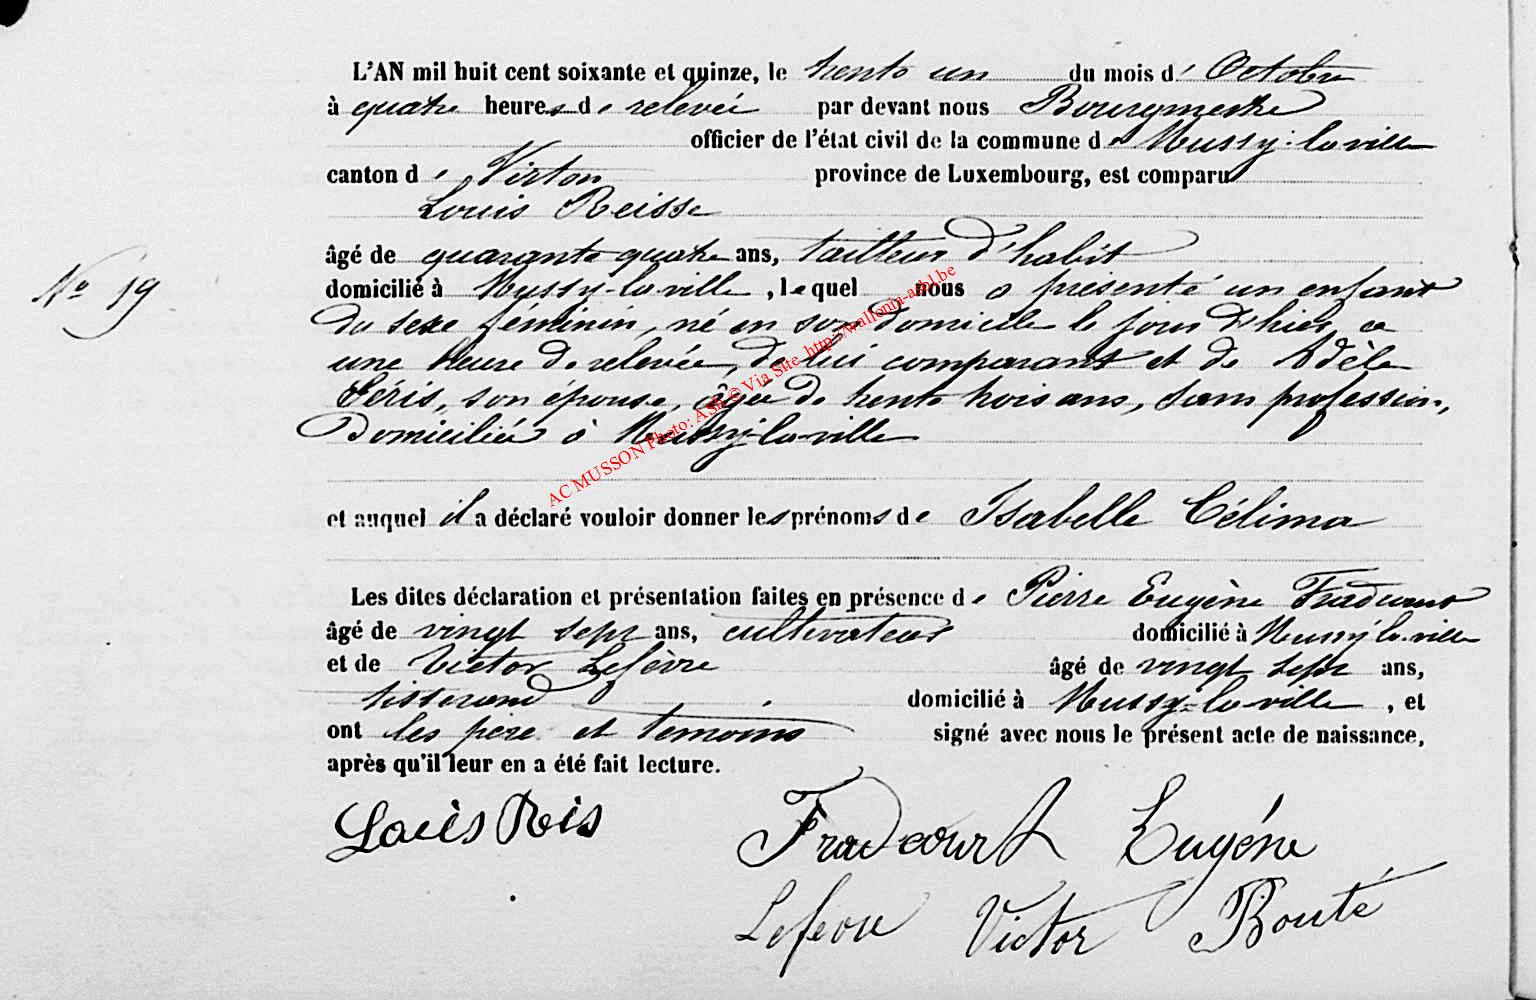 L'AN mil huit cent soixante et quinze, le trente un du mois d' Octobre
à quatre heures de relevée par devant nous Bourgmestre
officier de l'état civil de la commune de Mussy-la-ville
canton de Virton province de Luxembourg, est comparu
Louis Reisse
âgé de quarante quatre ans, tailleur d'habit
domicilié à Mussy-la-ville, lequel nous a présenté un enfant
N° 19
du sexe féminin, né en son domicile le jour d'hier, a
une heure de relevée, de lui comparant et de Adèle
Séris, son épouse, âgée de trente trois ans, sans profession,
domiciliée à Mussy-la-ville
AC MUSSON Photo: ASBL © Via Site http://wallonia-asbl.be
et auquel il a déclaré vouloir donner les prénoms de Isabelle Célima
Les dites déclaration et présentation faites en présence de Pierre Eugène Fradcourt
âgé de vingt sept ans, cultivateur domicilié à Mussy-la-ville
et de Victor Lefèvre âgé de vingt sept ans,
tisserand domicilié à Mussy-la-ville, et
ont les père et temoins signé avec nous le présent acte de naissance,
après qu'il leur en a été fait lecture.
Louis Reis Fradcourt Eugéne
Lefevre Victor Bouté